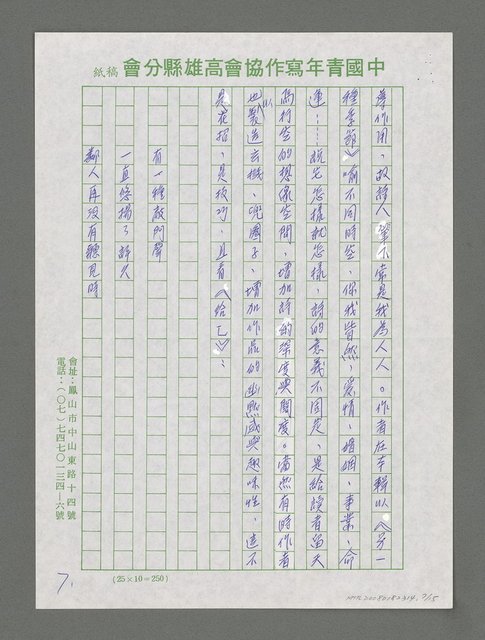 中國青年寫作協會高雄縣分會 稿紙
導作用，故詩人筆下常是我為人人。作者在本輯以《另一
種季節》喻不同時空、你我皆然，愛情、婚姻、事業、命
運……說它怎樣就怎樣，詩的意義不固定，是給讀者留天
馬行空的想像空間，增加詩的深度與闊度。當然有時作者
也以製造玄機、兜圈子，增加作品的幽默感與趣味性，這不
是花招，是技巧，且看《給乙》：
有一種敲門聲
一直悠揚了許久
鄰人再沒有聽見時
會址：鳳山市中山東路十四號
電話：（○七）七四七○一三四－六號
(25×10=250)
7.